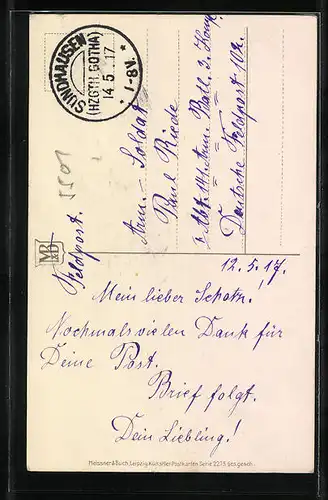 SUNDHAUSEN
(HZGTH. GOTHA)
14.5.17
* 1-8V. *
5501
Feldpost.
Arm.- Soldat
Paul Riede
z. Abt. 14. Arm. Batl. 3. Komp.
Deutsche Feldpost 102.
MB
12.5.17.
Mein lieber Schatz!
Nochmals vielen Dank für
Deine Post.
Brief folgt.
Dein Liebling!
Meissner & Buch, Leipzig Künstler-Postkarten Serie 2273 ges. gesch.